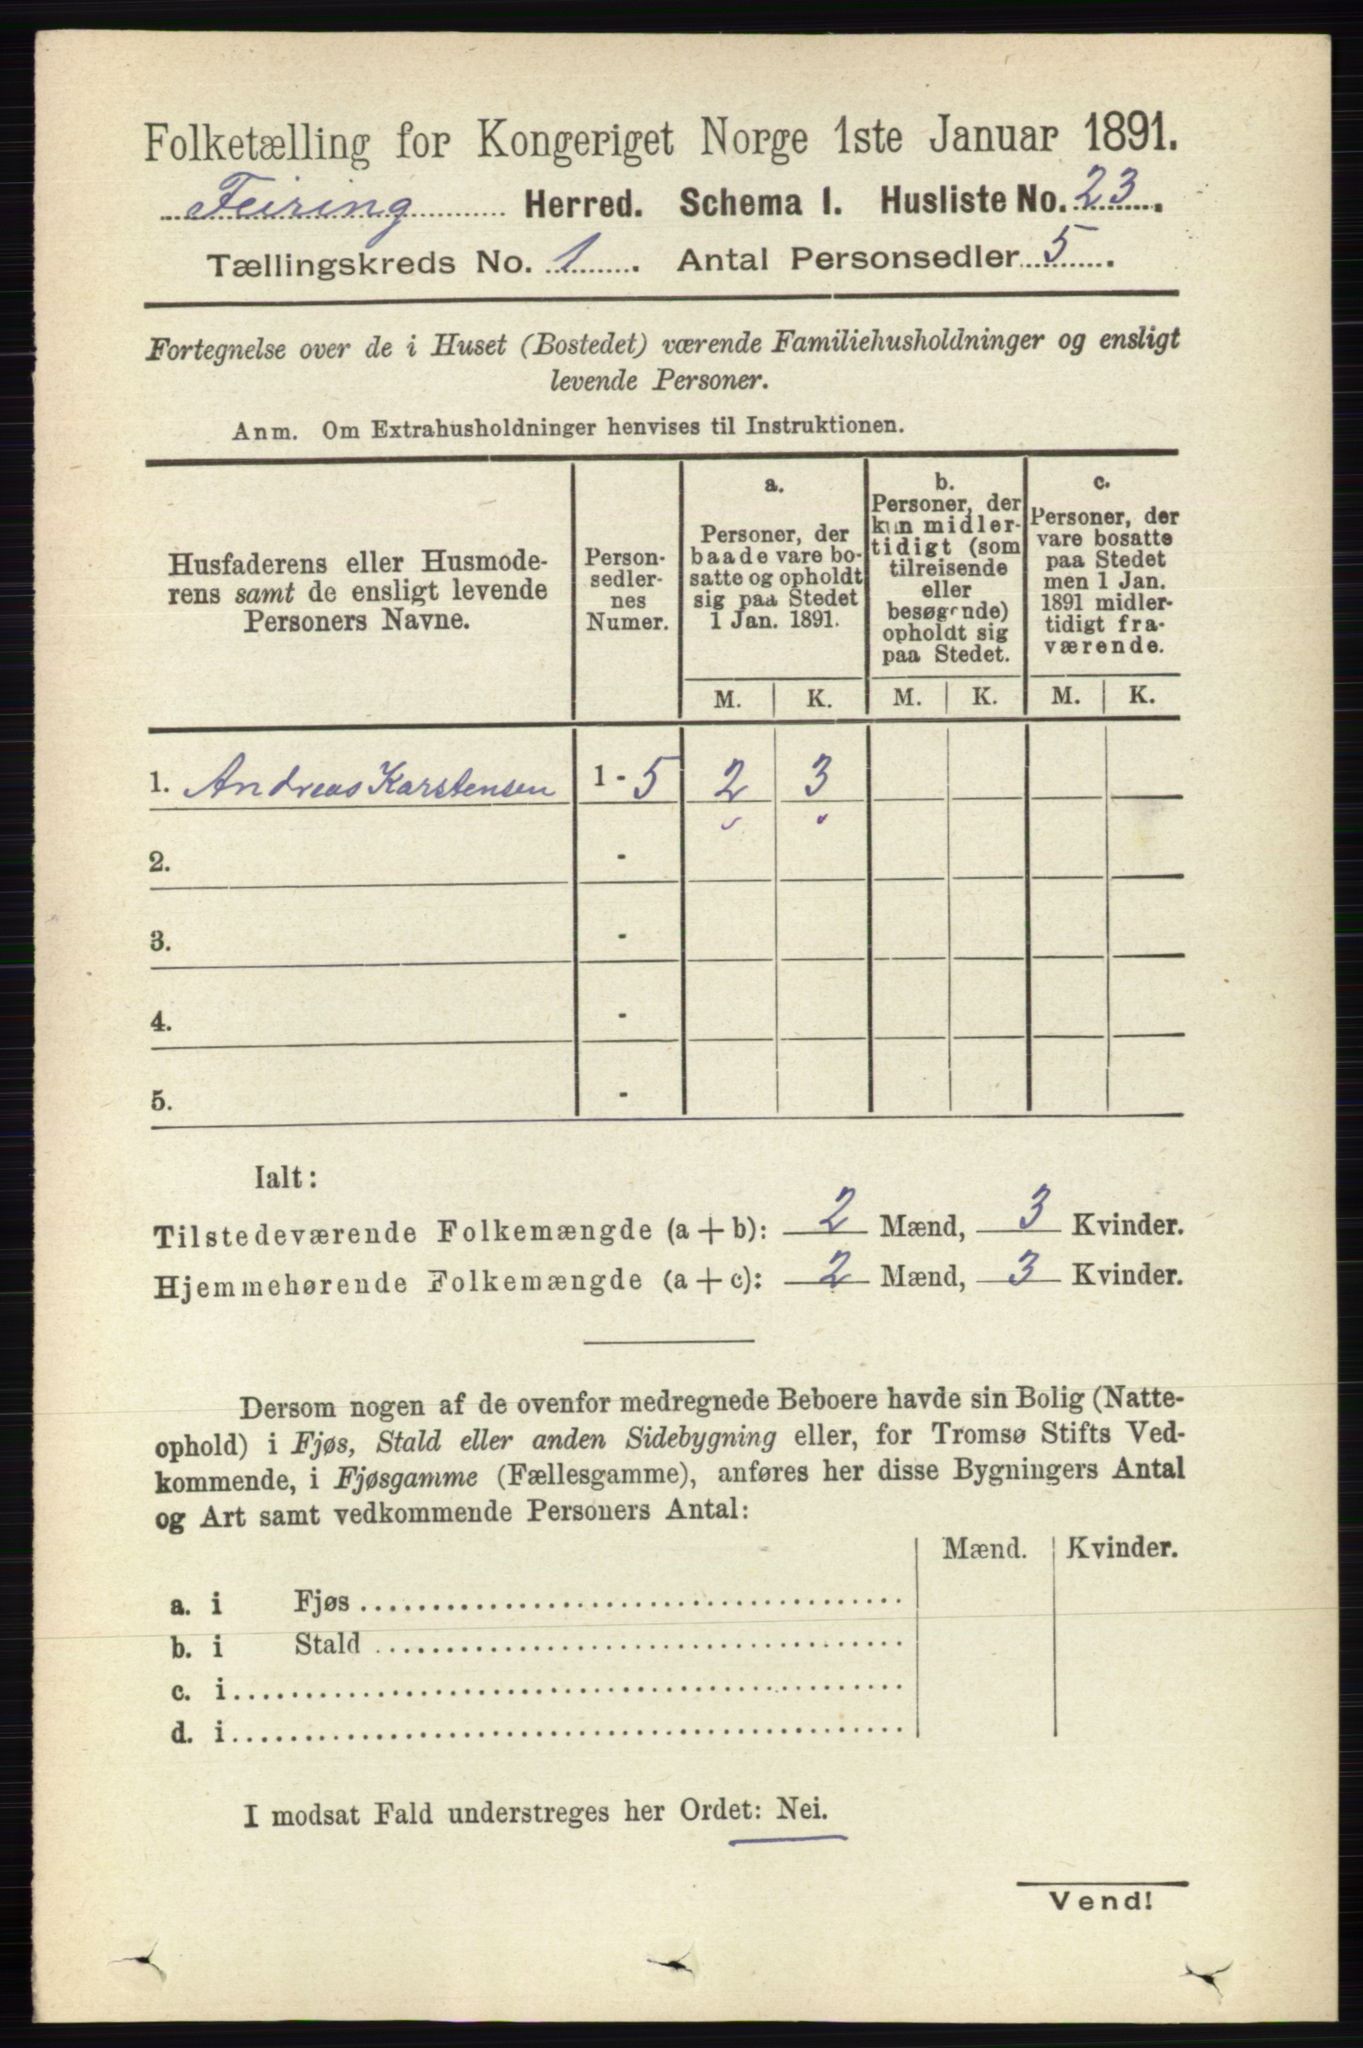 Folketælling for Kongeriget Norge 1ste Januar 1891.
Feiring Herred. Schema I. Husliste No. 23.
Tællingskreds No. 1. Antal Personsedler 5.
Fortegnelse over de i Huset (Bostedet) værende Familiehusholdninger og ensligt
levende Personer.
Anm. Om Extrahusholdninger henvises til Instruktionen.
Husfaderens eller Husmode-
rens samt de ensligt levende
Personers Navne.
Person-
sedler-
nes
Numer.
a.
Personer, der
baade vare bo-
satte og opholdt
sig paa Stedet
1 Jan. 1891.
b.
Personer, der
kun midler-
tidigt (som
tilreisende
eller
besøgende)
opholdt sig
paa Stedet.
c.
Personer, der
vare bosatte
paa Stedet
men 1 Jan.
1891 midler-
tidigt fra-
værende.
M. K. M. K. M. K.
1. Andreas Karstensen 1 - 5 2 3
2. -
3. -
4. -
5. -
Ialt:
Tilstedeværende Folkemængde (a + b): 2 Mænd, 3 Kvinder.
Hjemmehørende Folkemængde (a + c): 2 Mænd, 3 Kvinder.
Dersom nogen af de ovenfor medregnede Beboere havde sin Bolig (Natte-
ophold) i Fjøs, Stald eller anden Sidebygning eller, for Tromsø Stifts Ved-
kommende, i Fjøsgamme (Fællesgamme), anføres her disse Bygningers Antal
og Art samt vedkommende Personers Antal:
Mænd. Kvinder.
a. i Fjøs
b. i Stald
c. i
d. i
I modsat Fald understreges her Ordet: Nei.
Vend!